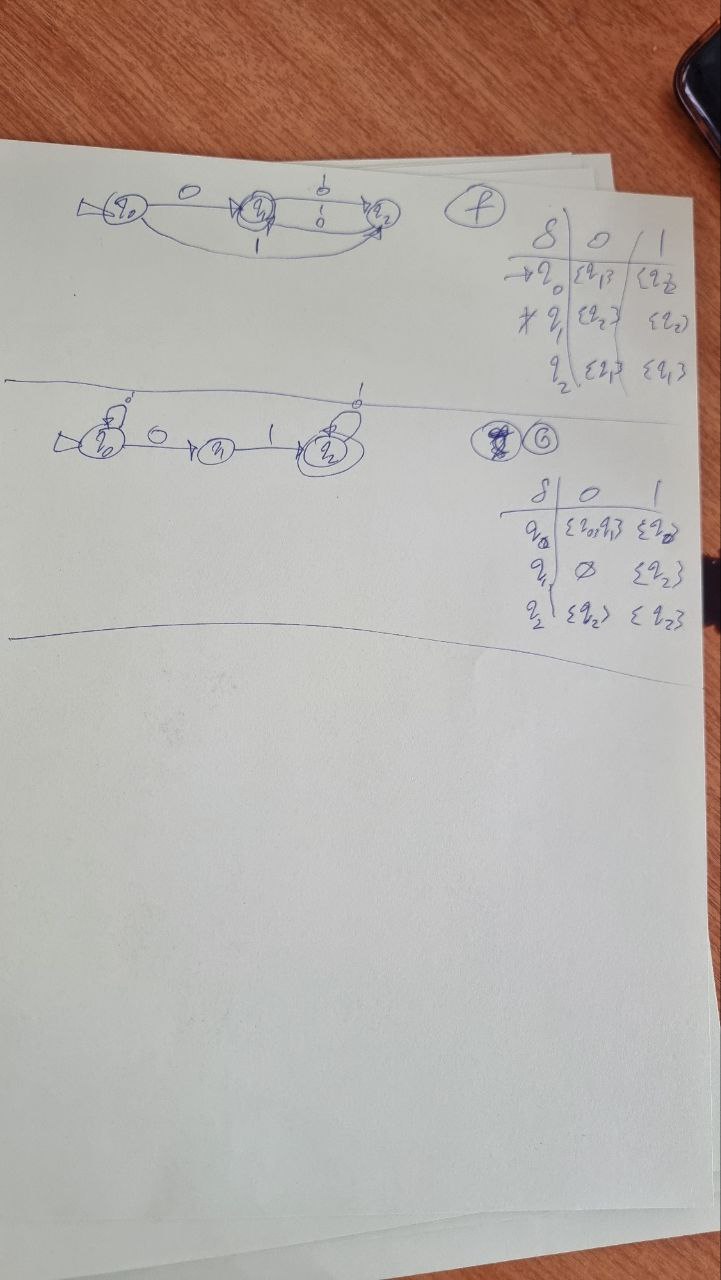 0 1 0
q₀ q₁ q₂
1 0
1
f
δ 0 1
→q₀ {q₁} {q₂}
* q₁ {q₂} {q₂}
q₂ {q₁} {q₁}
0 1
0 1 0
q₀ q₁ q₂
δ 0 1
q₀ {q₀,q₁} {q₀}
q₁ ∅ {q₂}
q₂ {q₂} {q₂}